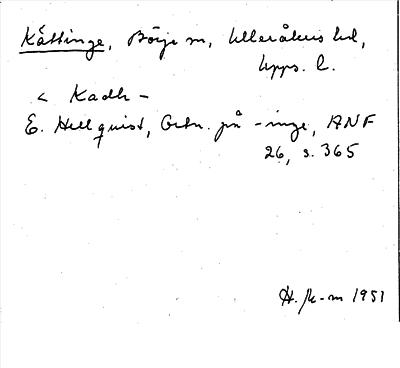 Kättinge, Börje sn, Ulleråkers hd,
Upps. l.
< Kadh -
E. Hellquist, Ortn. på -inge, ANF
26, s. 365
1951